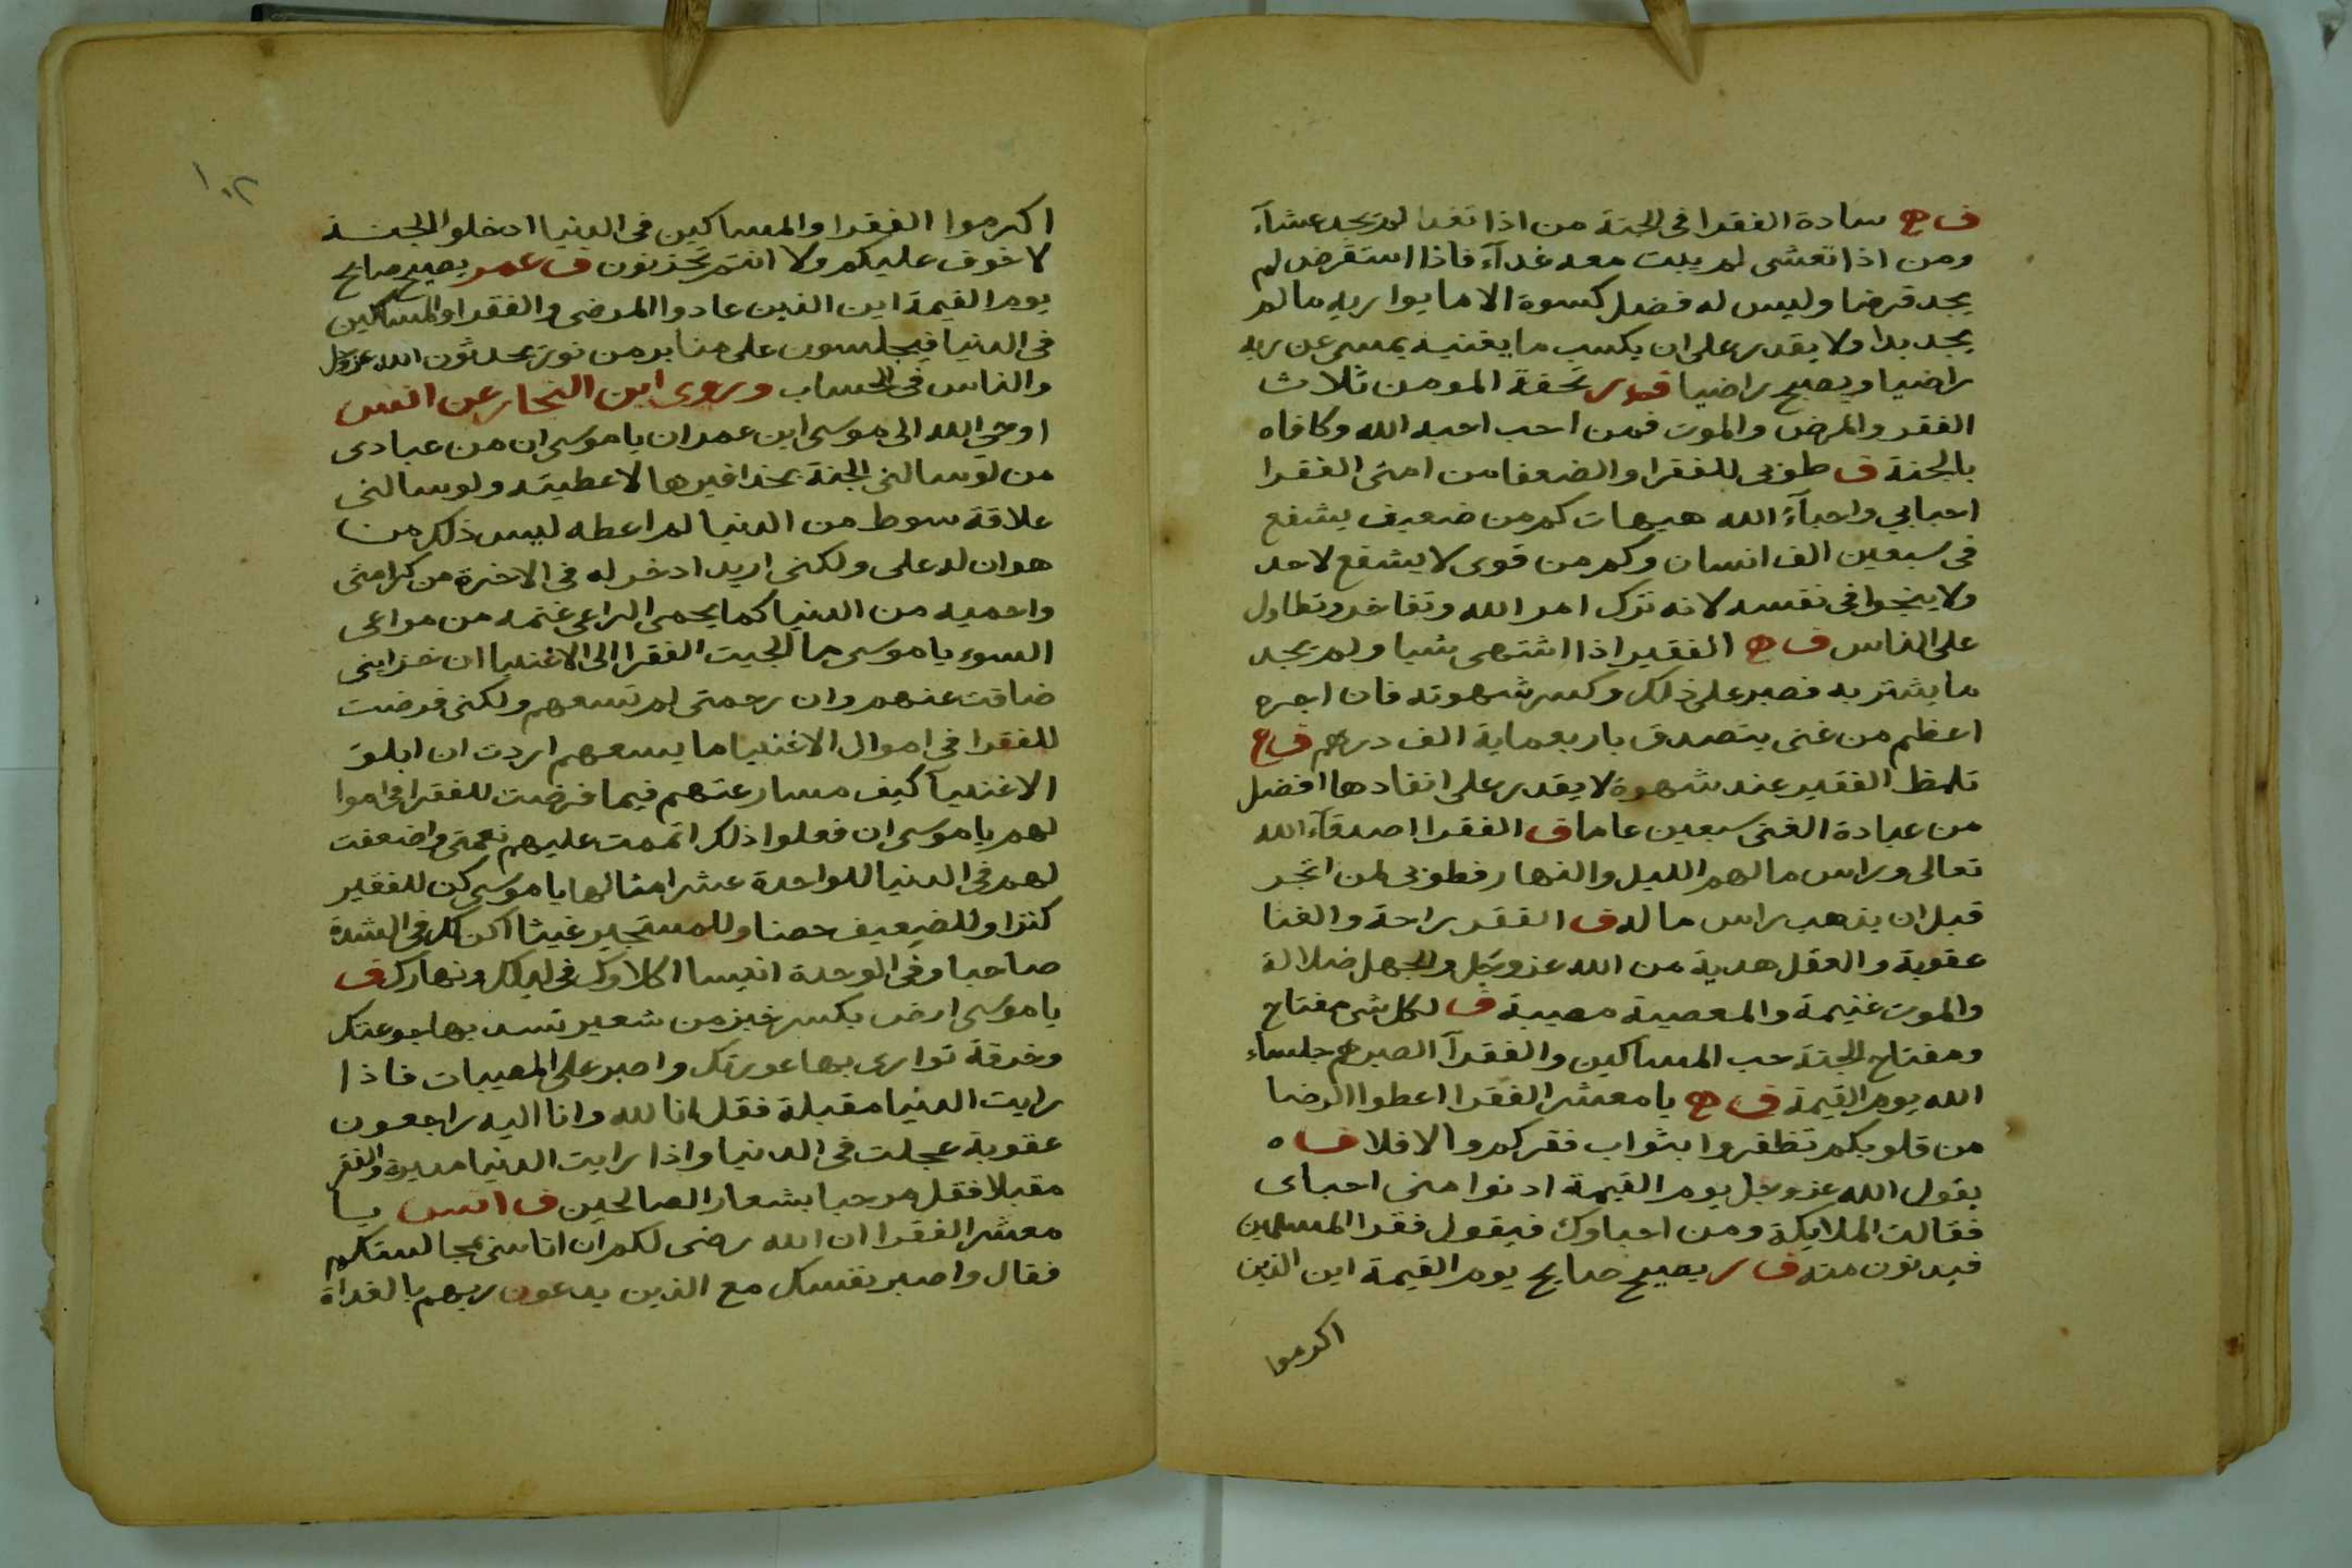 ف ح سادة الفقرا فى الجنة من اذا تغدا لم يجد عشآء
ومن اذا تعشى لم يبت معه غدآء فاذا استقرض لم
يجد قرضا وليس له فضل كسوة الا ما يواريه ما لم
يجد بدا ولا يقدر على ان يكسب ما يغنيه يمسى عن ربه
راضيا ويصبح راضيا تحفة المومن ثلاث
الفقر والمرض والموت فمن احب احبه الله وكافاه
بالجنة ف طوبى للفقرا والضعفا من امتى الفقرا
احبابي واحبآء الله هيهات كم من ضعيف يشفع
فى سبعين الف انسان وكم من قوى لا يشفع لاحد
ولا ينجوا فى نفسه لانه ترك امر الله وتفاخر وتطاول
على الناس ف ح الفقير اذا اشتهى شيا ولم يجد
ما يشتريه فصبر على ذلك وكسر شهوته فان اجره
اعظم من غنى يتصدق باربعماية الف درهم ف ع
تلمظ الفقير عند شهوة لا يقدر على انفادها افضل
من عبادة الغنى سبعين عاما ف الفقرا اصدقآء الله
تعالى وراس مالهم الليل والنهار فطوبى لمن اتجر
قبل ان يذهب راس ماله ف الفقر راحة والغنا
عقوبة والعقل هدية من الله عز وجل والجهل ضلالة
والموت غنيمة والمعصية مصيبة ف لكل شى مفتاح
ومفتاح الجنة حب المساكين والفقرآ الصبر هم جلساء
الله يوم القيمة ف ح يا معشر الفقرا اعطوا الرضا
من قلوبكم تظفروا بثواب فقركم والا فلا ف ه
يقول الله عز وجل يوم القيمة ادنوا منى احباى
فقالت الملايكة ومن احباوك فيقول فقرا المسلمين
فيدنون منه ف ر يصيح صايح يوم القيمة اين الذين
اكرموا
١٠٢
اكرموا الفقرا والمساكين فى الدنيا ادخلوا الجنة
لا خوف عليكم ولا انتم تحزنون ف عمر يصيح صايح
يوم القيمة اين الذين عادوا المرضى والفقرا والمساكين
فى الدنيا فيجلسون على منابر من نور يحدثون الله عز وجل
والناس فى الحساب وروى ابن النجار عن انس
اوحى الله الى موسى ابن عمران يا موسى ان من عبادى
من لو سالنى الجنة بحذافيرها لاعطيته ولو سالنى
علاقة سوط من الدنيا لم اعطه ليس ذلك من
هوان له على ولكنى اريد ادخر له فى الاخرة من كرامتى
واحميه من الدنيا كما يحمى الراعى غنمه من مراعى
السوء يا موسى ما الجيت الفقرا الى الاغنيا ان خزاينى
ضاقت عنهم وان رحمتى لم تسعهم ولكنى فرضت
للفقرا فى اموال الاغنيا ما يسعهم اردت ان ابلو
الاغنيآ كيف مسارعتهم فيما فرضت للفقرا فى اموا
لهم يا موسى ان فعلوا ذلك اتممت عليهم نعمتى واضعفت
لهم فى الدنيا للواحدة عشر امثالها يا موسى كن للفقير
كنزا وللضعيف حصنا وللمستجير غيثا اكن لك فى الشدة
صاحبا وفى الوحدة انيسا اكلاوك فى ليلك ونهارك ف
يا موسى ارض بكسر خبز من شعير تسد بها جوعتك
وخرقة توارى بها عورتك واصبر على المصيبات فاذا
رايت الدنيا مقبلة فقل انا لله وانا اليه راجعون
عقوبة عجلت فى الدنيا واذا رايت الدنيا مدبرة والفقر
مقبلا فقل مرحبا بشعار الصالحين ف انس يا
معشر الفقرا ان الله رضى لكم ان اتاسى بمجالستكم
فقال واصبر نفسك مع الذين يدعون ربهم بالغداة